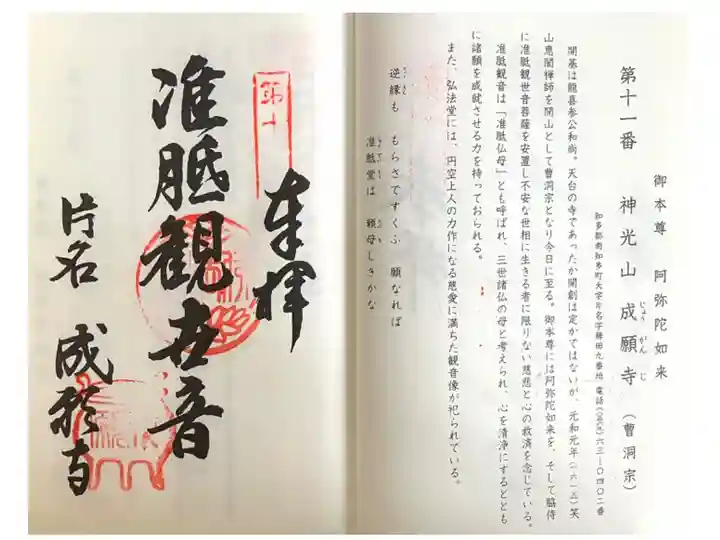 御本尊 阿弥陀如来
第十一番 神光山 成願寺(曹洞宗)
じょう がん じ
知多郡南知多町大字片名字稗田九番地 電話 六三―〇四〇二番
開基は龍喜参公和尚。天台の寺であったか開創は定かではないが、元和元年(一六一五)笑
山恵誾禅師を開山として曹洞宗となり今日に至る。御本尊には阿弥陀如来を、そして脇侍
に准胝観世音菩薩を安置し不安な世相に生きる者に限りない慈悲と心の救済を念じている。
准胝観音は「准胝仏母」とも呼ばれ、三世諸仏の母と考えられ、心を清浄にするととも
に諸願を成就させる力を持っておられる。
また、弘法堂には、円空上人の力作になる慈愛に満ちた観音像が祀られている。
逆縁も もらさですくふ 願なれば
准胝堂は 頼母しきかな
第十
奉拝
准胝観世音
片名 成願寺